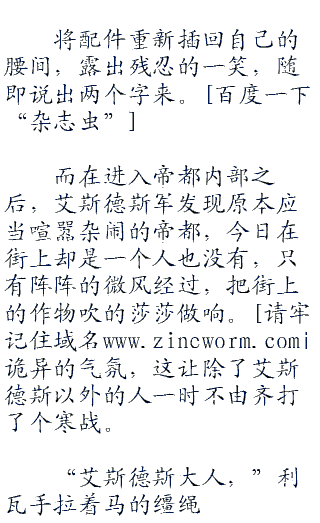 将配件重新插回自己的
腰间，露出残忍的一笑，随
即说出两个字来。[百度一下
“杂志虫”]
而在进入帝都内部之
后，艾斯德斯军发现原本应
当喧嚣杂闹的帝都，今日在
街上却是一个人也没有，只
有阵阵的微风经过，把街上
的作物吹的莎莎做响。[请牢
记住域名www.zincworm.com]
诡异的气氛，这让除了艾斯
德斯以外的人一时不由齐打
了个寒战。
“艾斯德斯大人，”利
瓦手拉着马的缰绳